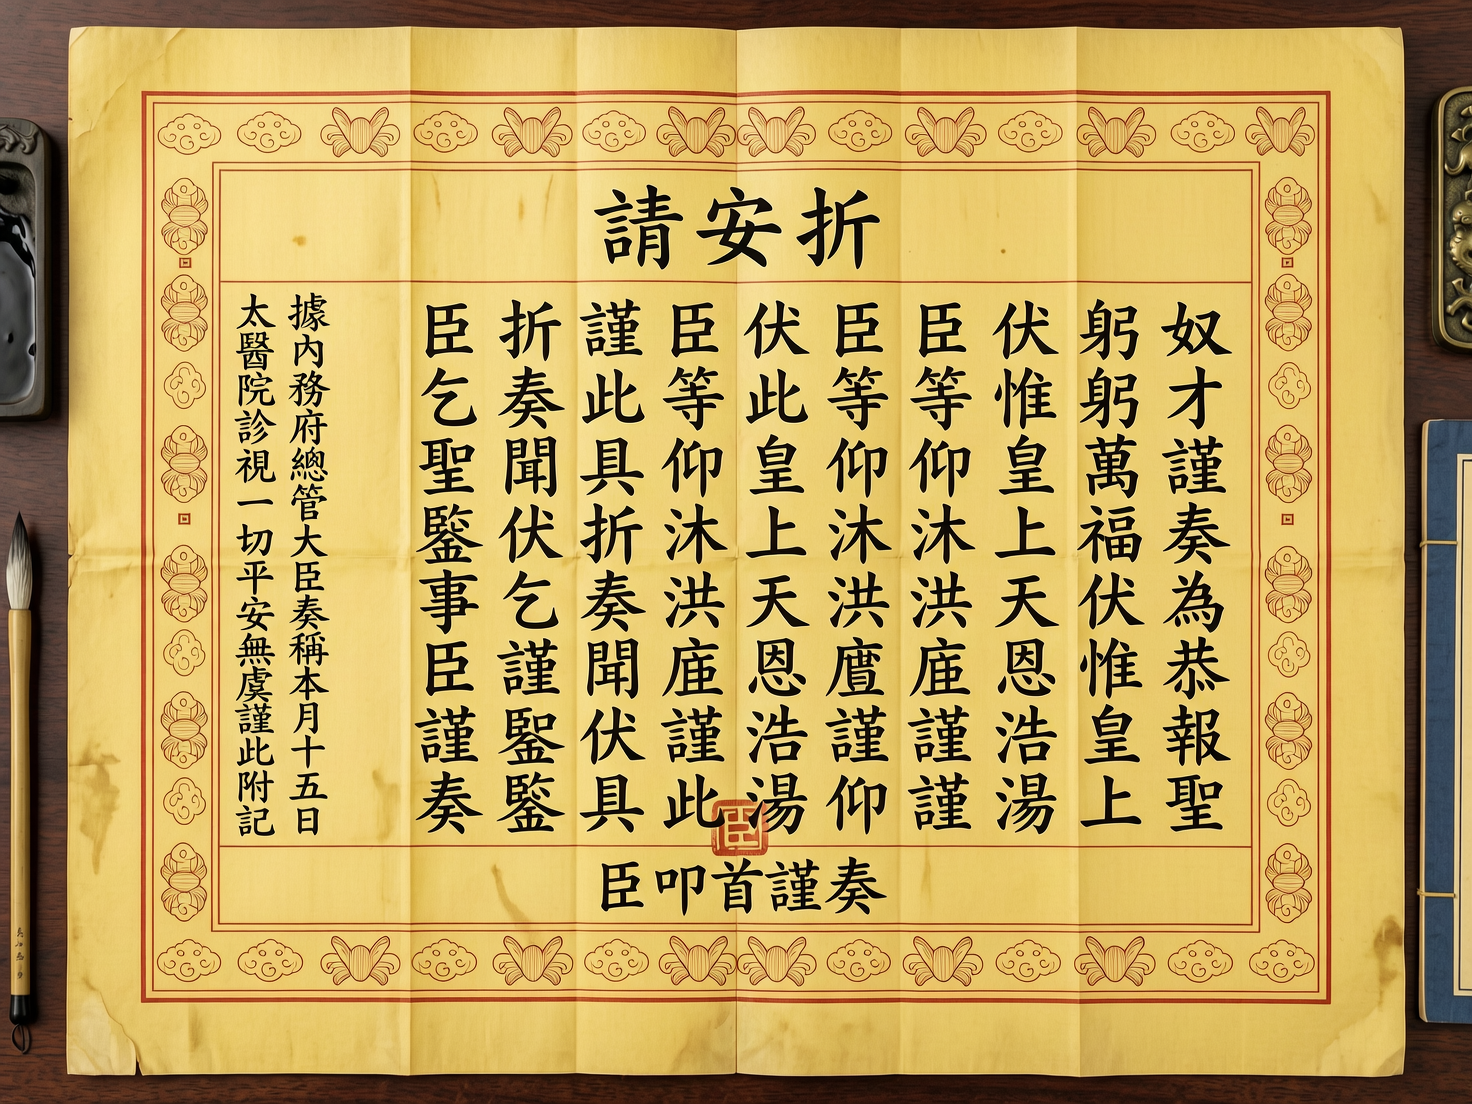 請安折
奴才謹奏為恭報聖
躬躬萬福伏惟皇上
伏惟皇上天恩浩湯
臣等仰沐洪謹謹
臣等仰沐洪謹仰
伏此皇上天恩浩湯
臣等仰沐洪謹此
謹此具折奏聞伏具
折奏聞伏乞謹鑒
臣乞聖鑒事臣謹奏
據內務府總管大臣奏稱本月十五日
太醫院診視一切平安無虞謹此附記
臣
臣叩首謹奏